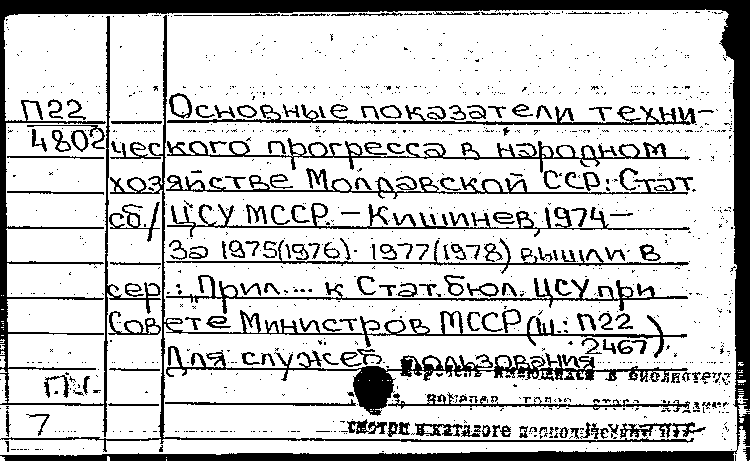 П22 Основные показатели техни-
4802 ческого прогресса в народном
хозяйстве Молдавской ССР: Стат.
сб./ ЦСУ МССР. - Кишинев, 1974-
За 1975(1976). 1977(1978) вышли в
сер.: "Прил.... к Стат. бюл. ЦСУ при
Совете Министров МССР (ш.: П22
2467).
Для служеб пользования
Перечень имеющихся в библиотеке
номеров,
7 смотри в каталоге